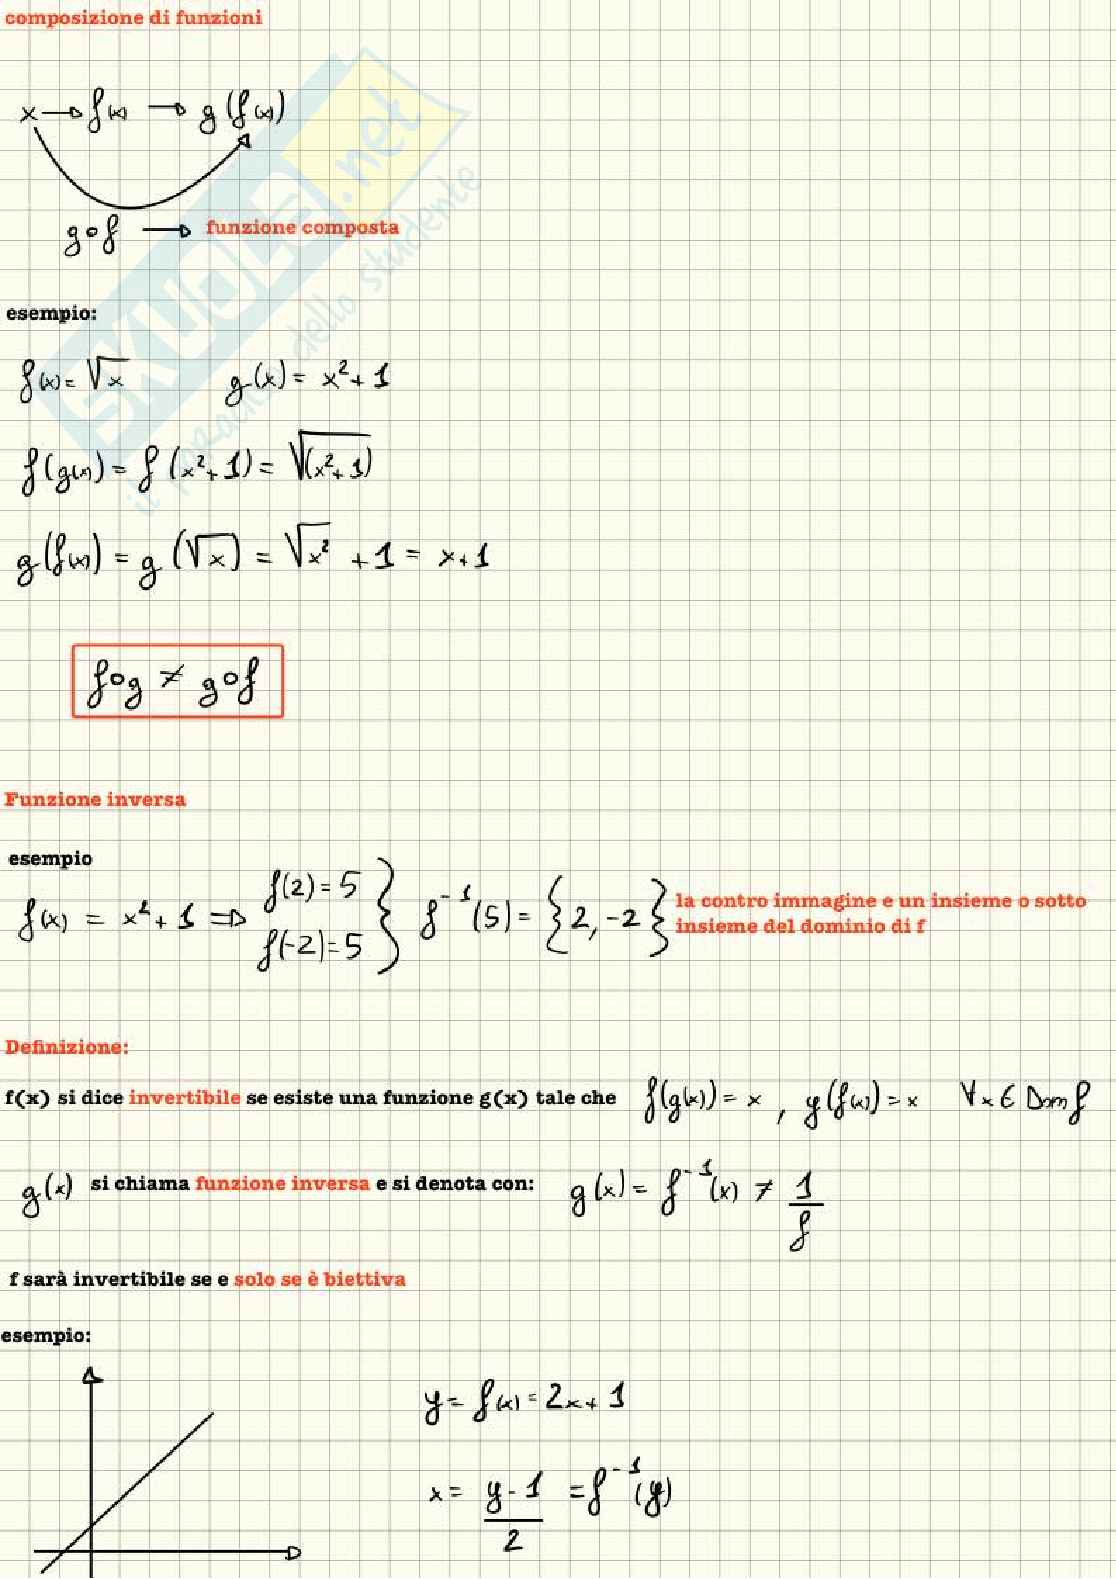 composizione di funzioni
x → f(x) → g(f(x))
g∘f → funzione composta
esempio:
f(x) = √x g(x) = x² + 1
f(g(x)) = f(x²+1) = √(x²+1)
g(f(x)) = g(√x) = √x² + 1 = x+1
f∘g ≠ g∘f
Funzione inversa
esempio
f(x) = x² + 1 ⇒ f(2) = 5 f(-2) = 5 } f⁻¹(5) = {2, -2} la contro immagine e un insieme o sotto
insieme del dominio di f
Definizione:
f(x) si dice invertibile se esiste una funzione g(x) tale che f(g(x)) = x , g(f(x)) = x ∀x ∈ Dom f
g(x) si chiama funzione inversa e si denota con: g(x) = f⁻¹(x) ≠ 1/f
f sarà invertibile se e solo se è biettiva
esempio:
y = f(x) = 2x + 1
x = (y - 1)/2 = f⁻¹(y)
SKUOLA.net
il portale dello studente